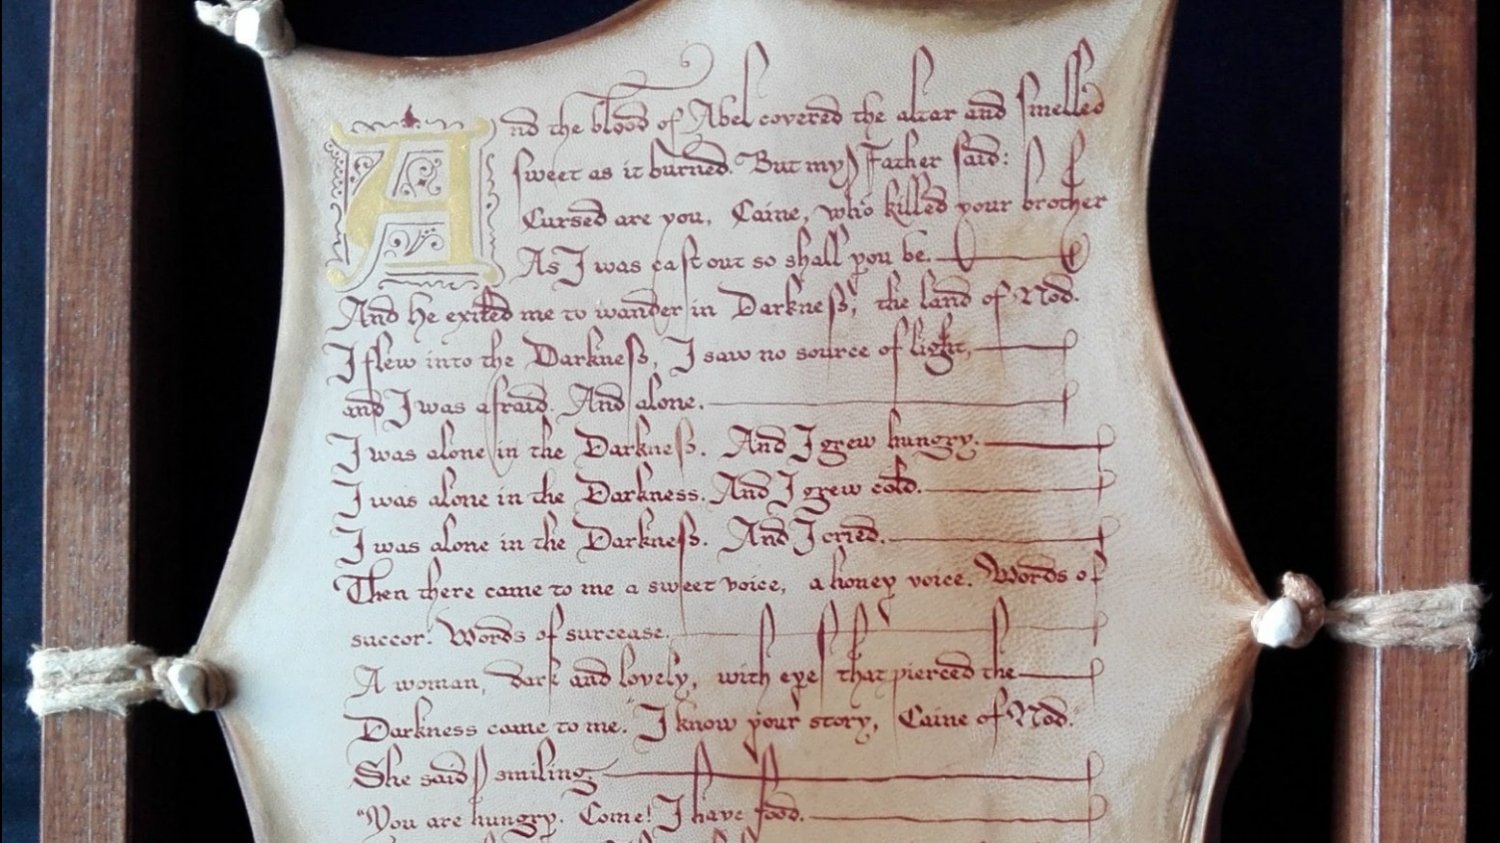 And the blood of Abel covered the altar and smelled
sweet as it burned. But my Father said:
Cursed are you, Caine, who killed your brother
As I was cast out so shall you be.
And he exiled me to wander in Darkness, the land of Nod.
I flew into the Darkness, I saw no source of light,
and I was afraid. And alone.
I was alone in the Darkness. And I grew hungry.
I was alone in the Darkness. And I grew cold.
I was alone in the Darkness. And I cried.
Then there came to me a sweet voice, a honey voice. Words of
succor. Words of surcease.
A woman, dark and lovely, with eyes that pierced the
Darkness came to me. "I know your story, Caine of Nod."
She said smiling.
"You are hungry. Come! I have food.